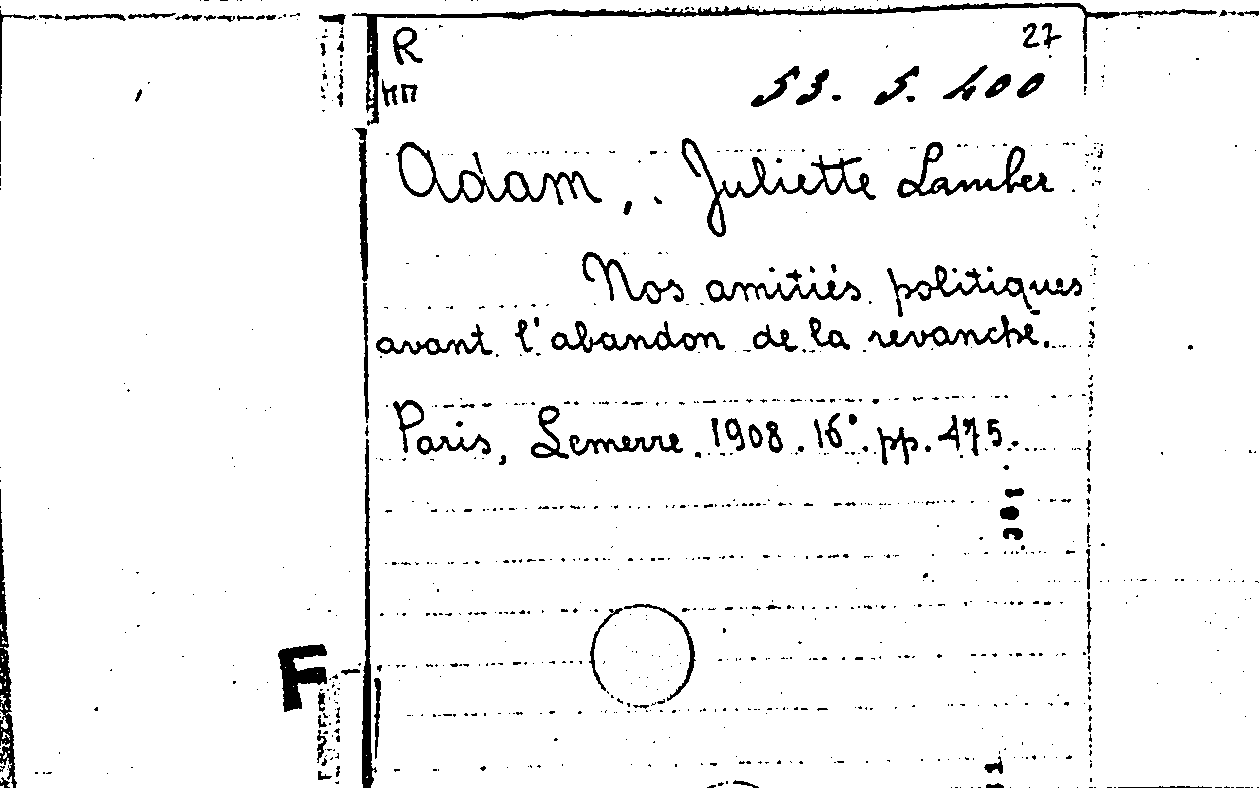 R 27
53. 5. 400
Adam, Juliette Lamber
Nos amitiés politiques
avant l'abandon de la revanche.
Paris, Lemerre. 1908. 16°. pp. 475.
F